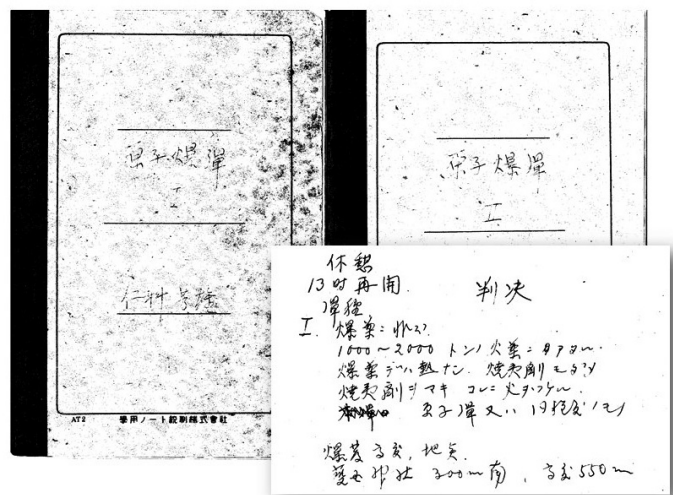 原子爆弾
I
仁科芳雄
AT2
學用ノート統制株式會社
原子爆弾
I
休憩
13時再開.
判決
弾種
I. 爆薬ニ非ズ
1000～2000 トンノ火薬ニ
爆薬デハ熱ナシ. 焼夷剤モ
焼夷剤ヲマキ コレニ火ガツケル.
原子弾又ハ 同程度ノモノ
爆発高度, 地点.
300m南, 高度550m